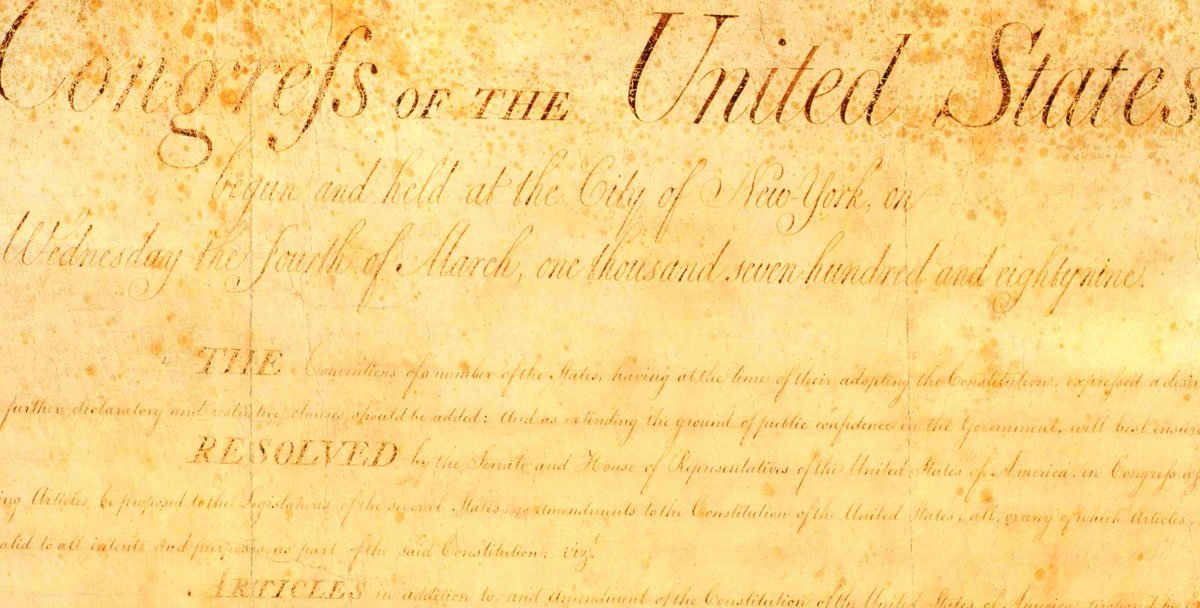 Congreſs OF THE United States
begun and held at the City of New-York, on
Wednesday the Fourth of March, one thousand seven hundred and eighty nine.
THE Conventions of a number of the States, having at the time of their adopting the Constitution, expressed a desir
further declaratory and restrictive clauses should be added: And as extending the ground of public confidence in the Government, will best ensure
RESOLVED by the Senate and House of Representatives of the United States of America, in Congress
ing Articles, be proposed to the Legislatures of the several States, as amendments to the Constitution of the United States, all, or any of which Articles,
alid to all intents and purposes, as part of the said Constitution; vizt
ARTICLES in addition to, and amendment of the Constitution of the United States of America